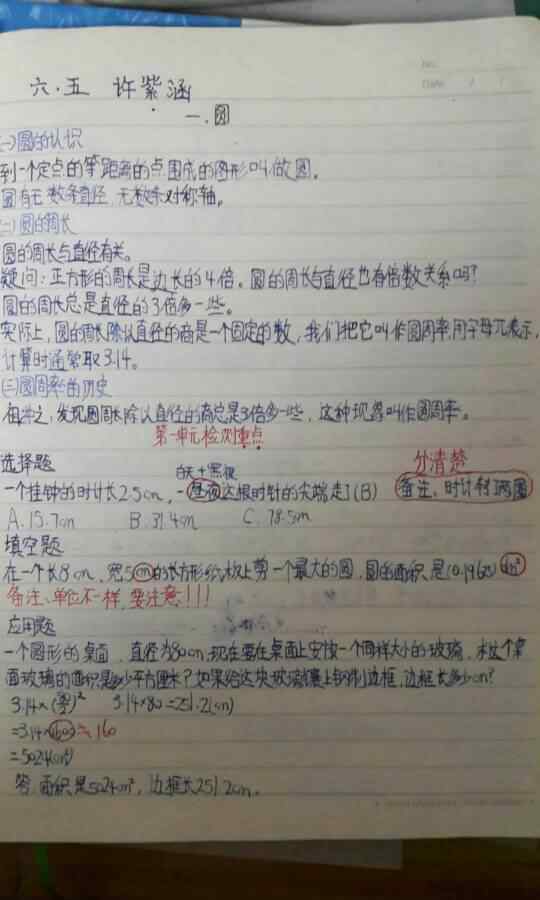 No.
Date / /
六.五 许紫涵
一.圆
(一)圆的认识
到一个定点的等距离的点围成的图形叫做圆。
圆有无数条直径,无数条对称轴。
(二)圆的周长
圆的周长与直径有关。
疑问:正方形的周长是边长的4倍。圆的周长与直径也有倍数关系吗?
圆的周长总是直径的3倍多一些。
实际上,圆的周长除以直径的商是一个固定的数,我们把它叫作圆周率,用字母π表示,
计算时通常取3.14。
(三)圆周率的历史
发现圆周长除以直径的商总是3倍多一些,这种现象叫作圆周率。
第一单元检测重点
选择题
白天+黑夜
分清楚
一个挂钟的时针长2.5cm,一昼夜这根时针的尖端走了(B)
备注:时针转两圈
A.15.7cm B.31.4cm C.78.5cm
填空题
在一个长8cm,宽5cm的长方形纸板上剪一个最大的圆,圆的面积是(0.1962)dm²
备注:单位不一样,要注意!!!
应用题
一个圆形的桌面,直径为80cm,现在要在桌面上安放一个同样大小的玻璃,求这个桌
面玻璃的面积是多少平方厘米?如果给这块玻璃镶上钢制边框,边框长多少cm?
3.14×(80/2)² 3.14×80=251.2(cm)
=3.14×1600
=5024(cm²)
答:面积是5024cm²,边框长251.2cm。